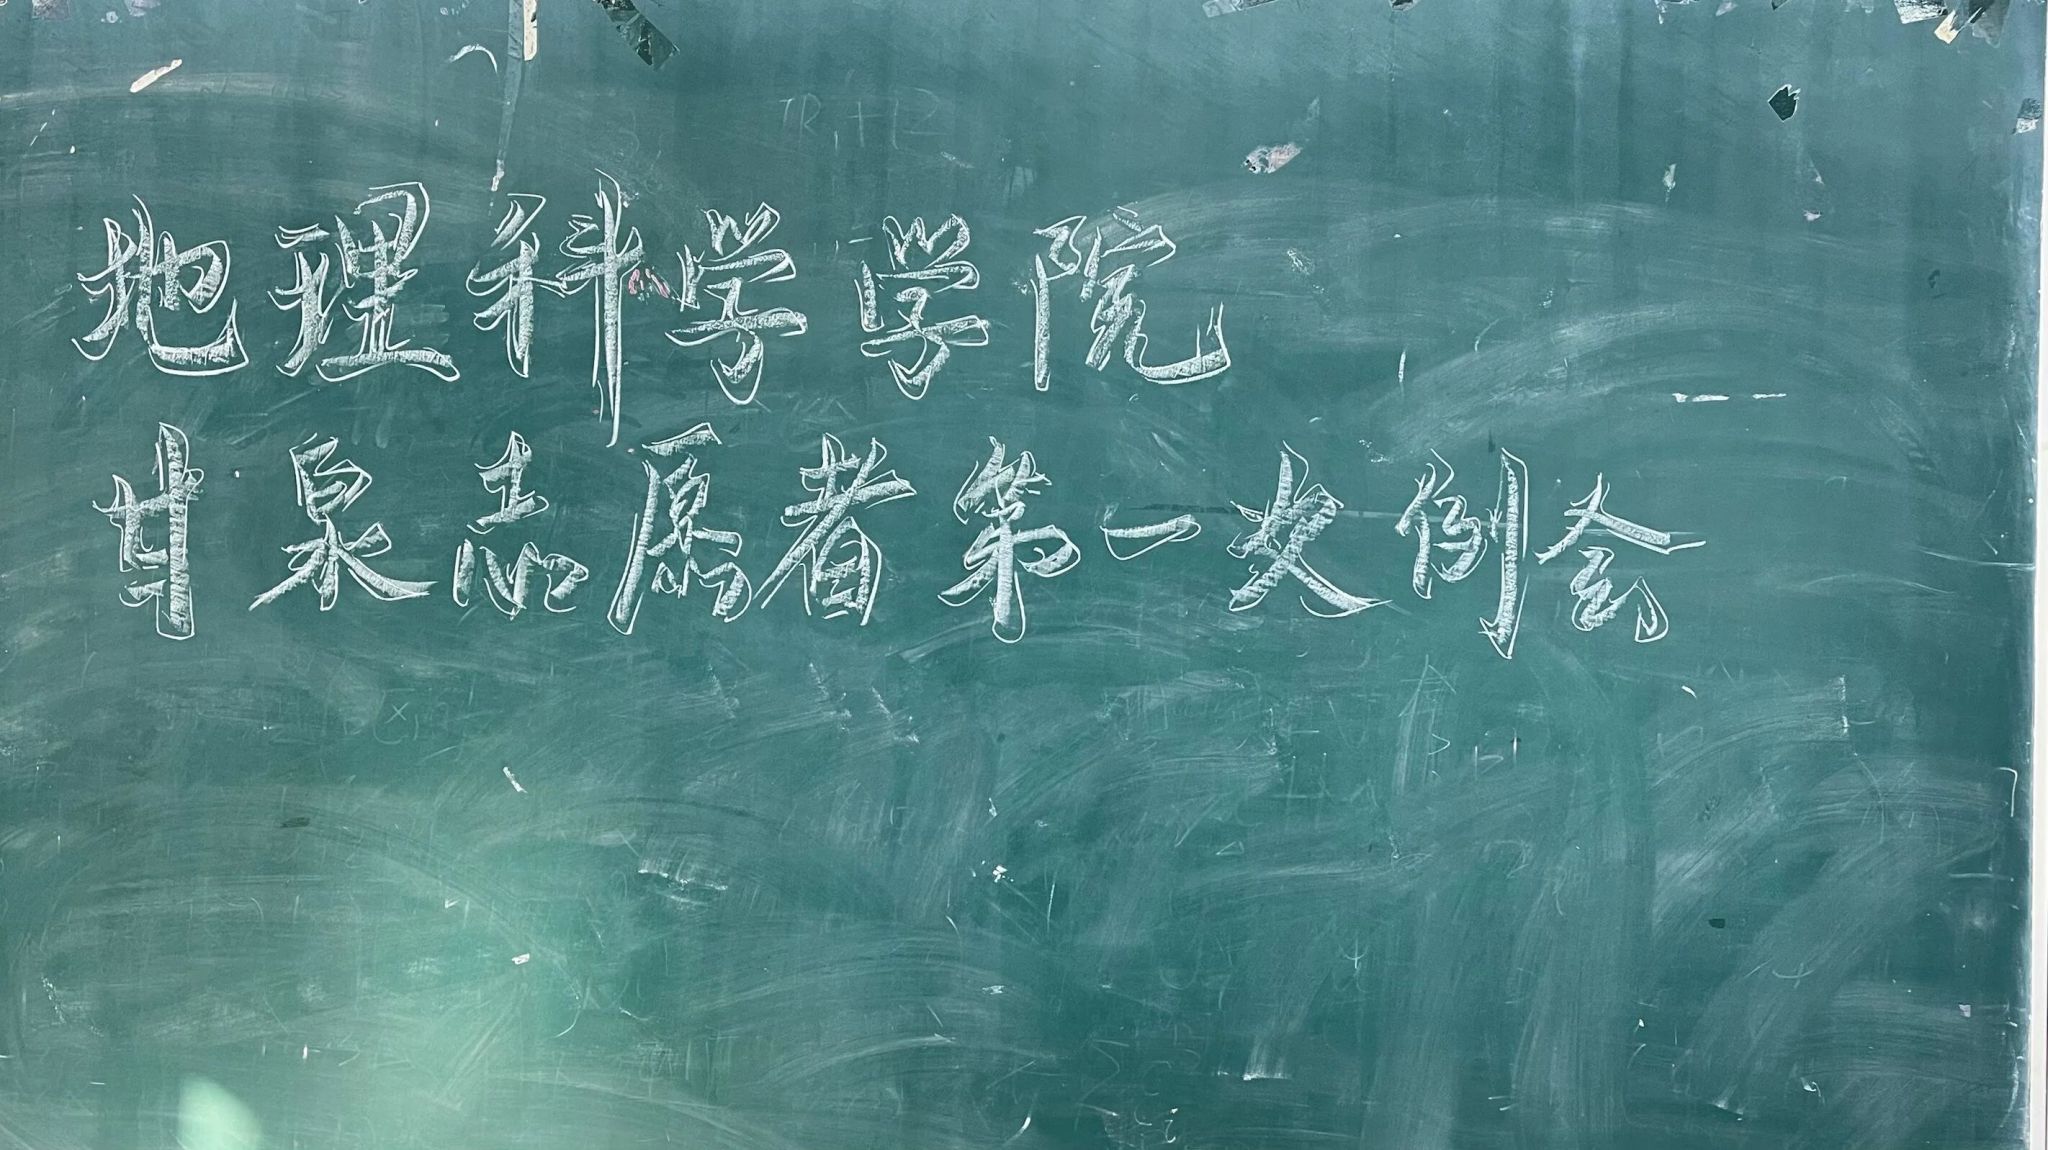 地理科学学院
甘泉志愿者第一次例会